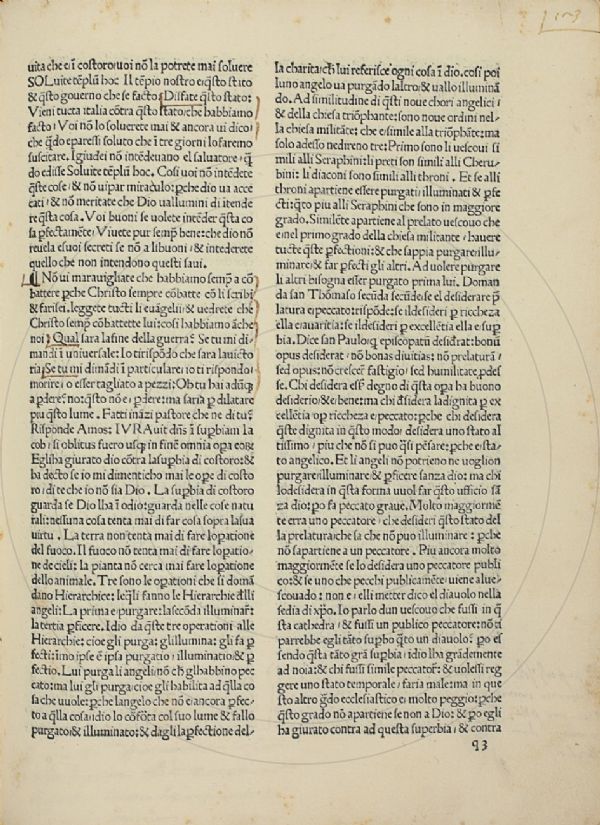 uita che e ĩ costoro/uoi nõ la potrete mai soluere
SOLuite tẽplũ hoc. Il tẽpio nostro e q̃sto stato
& q̃sto gouerno che se facto. Disfate q̃sto stato:
Vieni tucta italia cõtra q̃sto stato/che babbiamo
facto/ Voi nõ lo soluerete mai & ancora ui dico/
che q̃do eparessi soluto che ĩ tre giorni lo faremo
suscitare. Igiudei nõ intẽdeuano el saluatore/ q̃/
do edisse Soluite tẽplũ hoc. Cosi uoi nõ intẽdete
q̃ste cose/ & nõ uipar miraculo: ꝑche dio ua acce
cati/ & nõ meritate che Dio uallumini di itende
re q̃sta cosa. Voi buoni se uolete intẽder q̃sta co
sa ꝑfectamẽte/ Viuete pur semp̃ bene: che dio nõ
riuela esuoi secreti se nõ a libuoni/ & intederete
quello che non intendono questi saui.
Nõ ui marauigliate che babbiamo semp̃ a cõ
battere ꝑche Christo sempre cõbatte cõ li scribi
& farisei. leggete tucti li euãgeli/ & uedrete che
Christo semp̃ cõbattette lui: cosi habbiamo ãche
noi/ Qual sara la fine della guerra? Se tu mi di/
mãdi ĩ uniuersale: Io tirispõdo che sara lauicto
ria/ Se tu mi dimãdi ĩ particulare: io ti rispondo/
morire/ o esser tagliato a pezzi: Ob tu bai adũq̃
a ꝑdere? nõ: q̃sto nõ e ꝑdere: ma sara ꝑ dilatare
piu q̃sto lume. Fatti inãzi pastore che ne di tu?
Risponde Amos: IVRAuit dñs ĩ supbiam Ia
cob/ si oblitus fuero usq̃ in finẽ omnia opa eoꝝ
Egliha giurato dio cõtra lasupbia di costoro: &
ba decto se io mi dimenticho mai le ope di costo
ro/ di te che io nõ sia Dio. La supbia di costoro
guarda se Dio lha ĩ odio: guarda nelle cose natu
rali: nessuna cosa tenta mai di far cosa sopra lasua
uirtu. La terra non tenta mai di fare lopatione
del fuoco. Il fuoco nõ tenta mai di fare lopatio/
ne de cieli: la pianta nõ cerca mai fare lopatione
dello animale. Tre sono le opationi che si domã
dano Hierarchice: leq̃li fanno le Hierarchie đlli
angeli: La prima e purgare: la secõda illuminaɼ:
la tertia ꝑficere. Idio da q̃ste tre operationi alle
Hierarchie: cioe gli purga: gl illumina: gli fa ꝑ
fecti: imo ipse ẽ ipsa purgatio/ illuminatio/ & ꝑ
fectio. Lui purga li angeli/ nõ cħ glibabbino pec
cato: ma lui gli purga/ cioe gli habilita ad q̃lla co
sa che uuole: ꝑche langelo che nõ e ancora ꝑfec/
to a q̃lla cosa/ dio lo cõfõta col suo lume & fallo
purgato/ & illuminato: & dagli la ꝑfectione del/
la charita/ cħ lui referisce ogni cosa ĩ dio. cosi poi
luno angelo ua purgãdo laltro/ & uallo illuminã
do. Ad similitudine di q̃sti noue chori angelici/
& della chiesa triõphante: sono noue ordini nel/
la chiesa militãte: che e simile alla triõphãte: ma
solo adesso nediremo tre: Primo sono li uescoui si
mili alli Seraphini: li preti son simili alli Cheru/
bini: li diaconi sono simili alli throni. Et se alli
throni apartiene essere purgati/ illuminati & ꝑfe
cti: q̃to piu alli Seraphini che sono in maggiore
grado. Similẽte apartiene al prelato uescouo che
e inel primo grado della chiesa militante/ hauere
tucte q̃ste ꝑfectioni: & che sappia purgare/ illu/
minare/ & far ꝑfecti gli altri. Ad uolere purgare
li altri bisogna esser purgato prima lui. Doman
da san Thõmaso secũda secũdæ se el desiderare p̃
latura e peccato: rispõde: se ildesideri ꝑ riccheza
ella e auaritia: se ildesideri ꝑ excellẽtia ella e sup
bia. Dice san Paulo: q̃ episcopatũ desiderat: bonũ
opus desiderat/ nõ bonas diuitias/ nõ prelaturã/
sed opus: nõ crescer̃ fastigio/ sed humilitate p̃des
se. Chi desidera esser degno di q̃sta opa ha buono
desiderio/ & e bene: ma chi đsidera la dignita ꝑ ex
cellẽtia/ op riccheza e peccato: ꝑche chi desidera
q̃ste dignita in q̃sto modo/ desidera uno stato al
tissimo/ piu che nõ si puo q̃si pẽsare: ꝑche e sta/
to angelico. Et li angeli nõ potrieno ne uoglion
purgare/ illuminare/ & ꝑficere sanza dio: ma chi
lo desidera in q̃sta forma uuol far q̃sto ufficio sã
za dio: po fa peccato graue. Molto maggiormẽ
te erra uno peccatore/ che desideri q̃sto stato del
la prelatura/ che sa che nõ puo illuminare: ꝑche
nõ sapartiene a un peccatore. Piu ancora molto
maggiormẽte se lo desidera uno peccatore publi
co: & se uno che pecchi publicamẽte/ uiene a lue/
scouado: non e/ elli metter dico el diauolo nella
sedia di xp̃o. Io parlo dun uescouo che fussi in q̃
sta cathedra/ & fussi un publico peccatore: nõ ti
parrebbe egli tãto supbo q̃to un diauolo? po es
sendo q̃sta tãta grã supbia/ idio lha grãdemente
ad noia: & chi fussi simile peccatoɼ: & uolessi reg
gere uno stato temporale/ faria male: ma in que
sto altro gđo ecclesiastico e molto peggio: ꝑche
q̃sto grado nõ apartiene se non a Dio: & po egli
ha giurato contra ad questa superbia/ & contra
q3